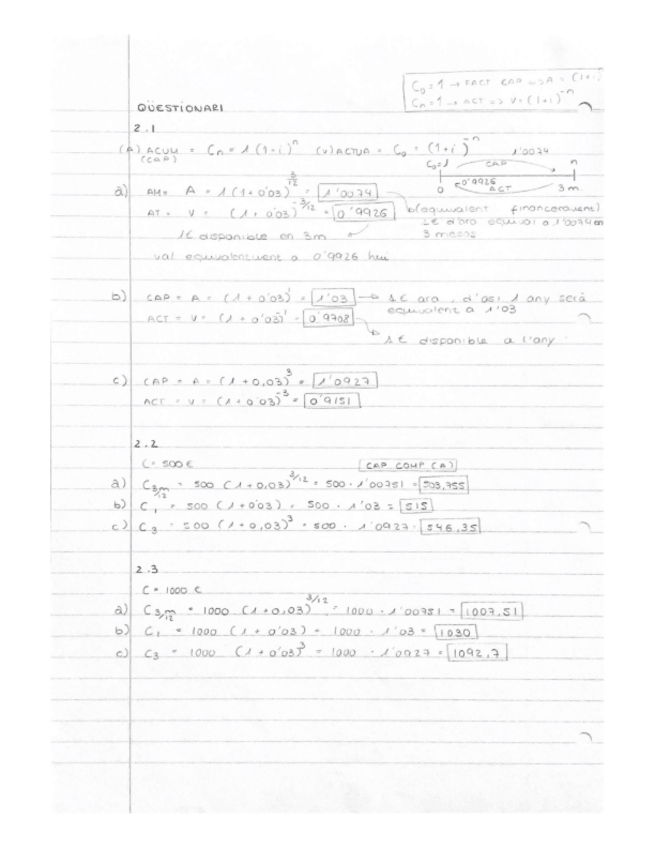 C₀ = 1 → FACT CAP => A = (1+i
Cₙ = 1 → ACT => V = (1+i)⁻ⁿ
QÜESTIONARI
2.1
(A) ACUM = Cₙ = 1 (1+i)ⁿ (V) ACTUA = C₀ = (1+i)⁻ⁿ
(CAP)
1'0074
C₀=1 CAP n
0'9926
0 ACT 3m
a) AM = A = 1 (1 + 0'03)^3/12 = 1'0074
AT = V = (1 + 0'03)^-3/12 = 0'9926
(equivalent financerament)
1€ d'ara equival a 1'0074 en
3 mesos
1€ disponible en 3m
val equivalentment a 0'9926 hui
b) CAP = A = (1 + 0'03)¹ = 1'03 → 1€ ara, d'así 1 any serà
equivalent a 1'03
ACT = V = (1 + 0'03)⁻¹ = 0'9708
1€ disponible a l'any
c) CAP = A = (1 + 0,03)³ = 1'0927
ACT = V = (1 + 0'03)⁻³ = 0'9151
2.2
C = 500 € CAP COMP (A)
a) C 3m/12 = 500 (1 + 0,03)^3/12 = 500 · 1'00751 = 503,755
b) C₁ = 500 (1 + 0'03) = 500 · 1'03 = 515
c) C₃ = 500 (1 + 0,03)³ = 500 · 1'0927 = 546,35
2.3
C = 1000 €
a) C 3m/12 = 1000 (1 + 0,03)^3/12 = 1000 · 1'00751 = 1007,51
b) C₁ = 1000 (1 + 0'03) = 1000 · 1'03 = 1030
c) C₃ = 1000 (1 + 0'03)³ = 1000 · 1'0927 = 1092,7